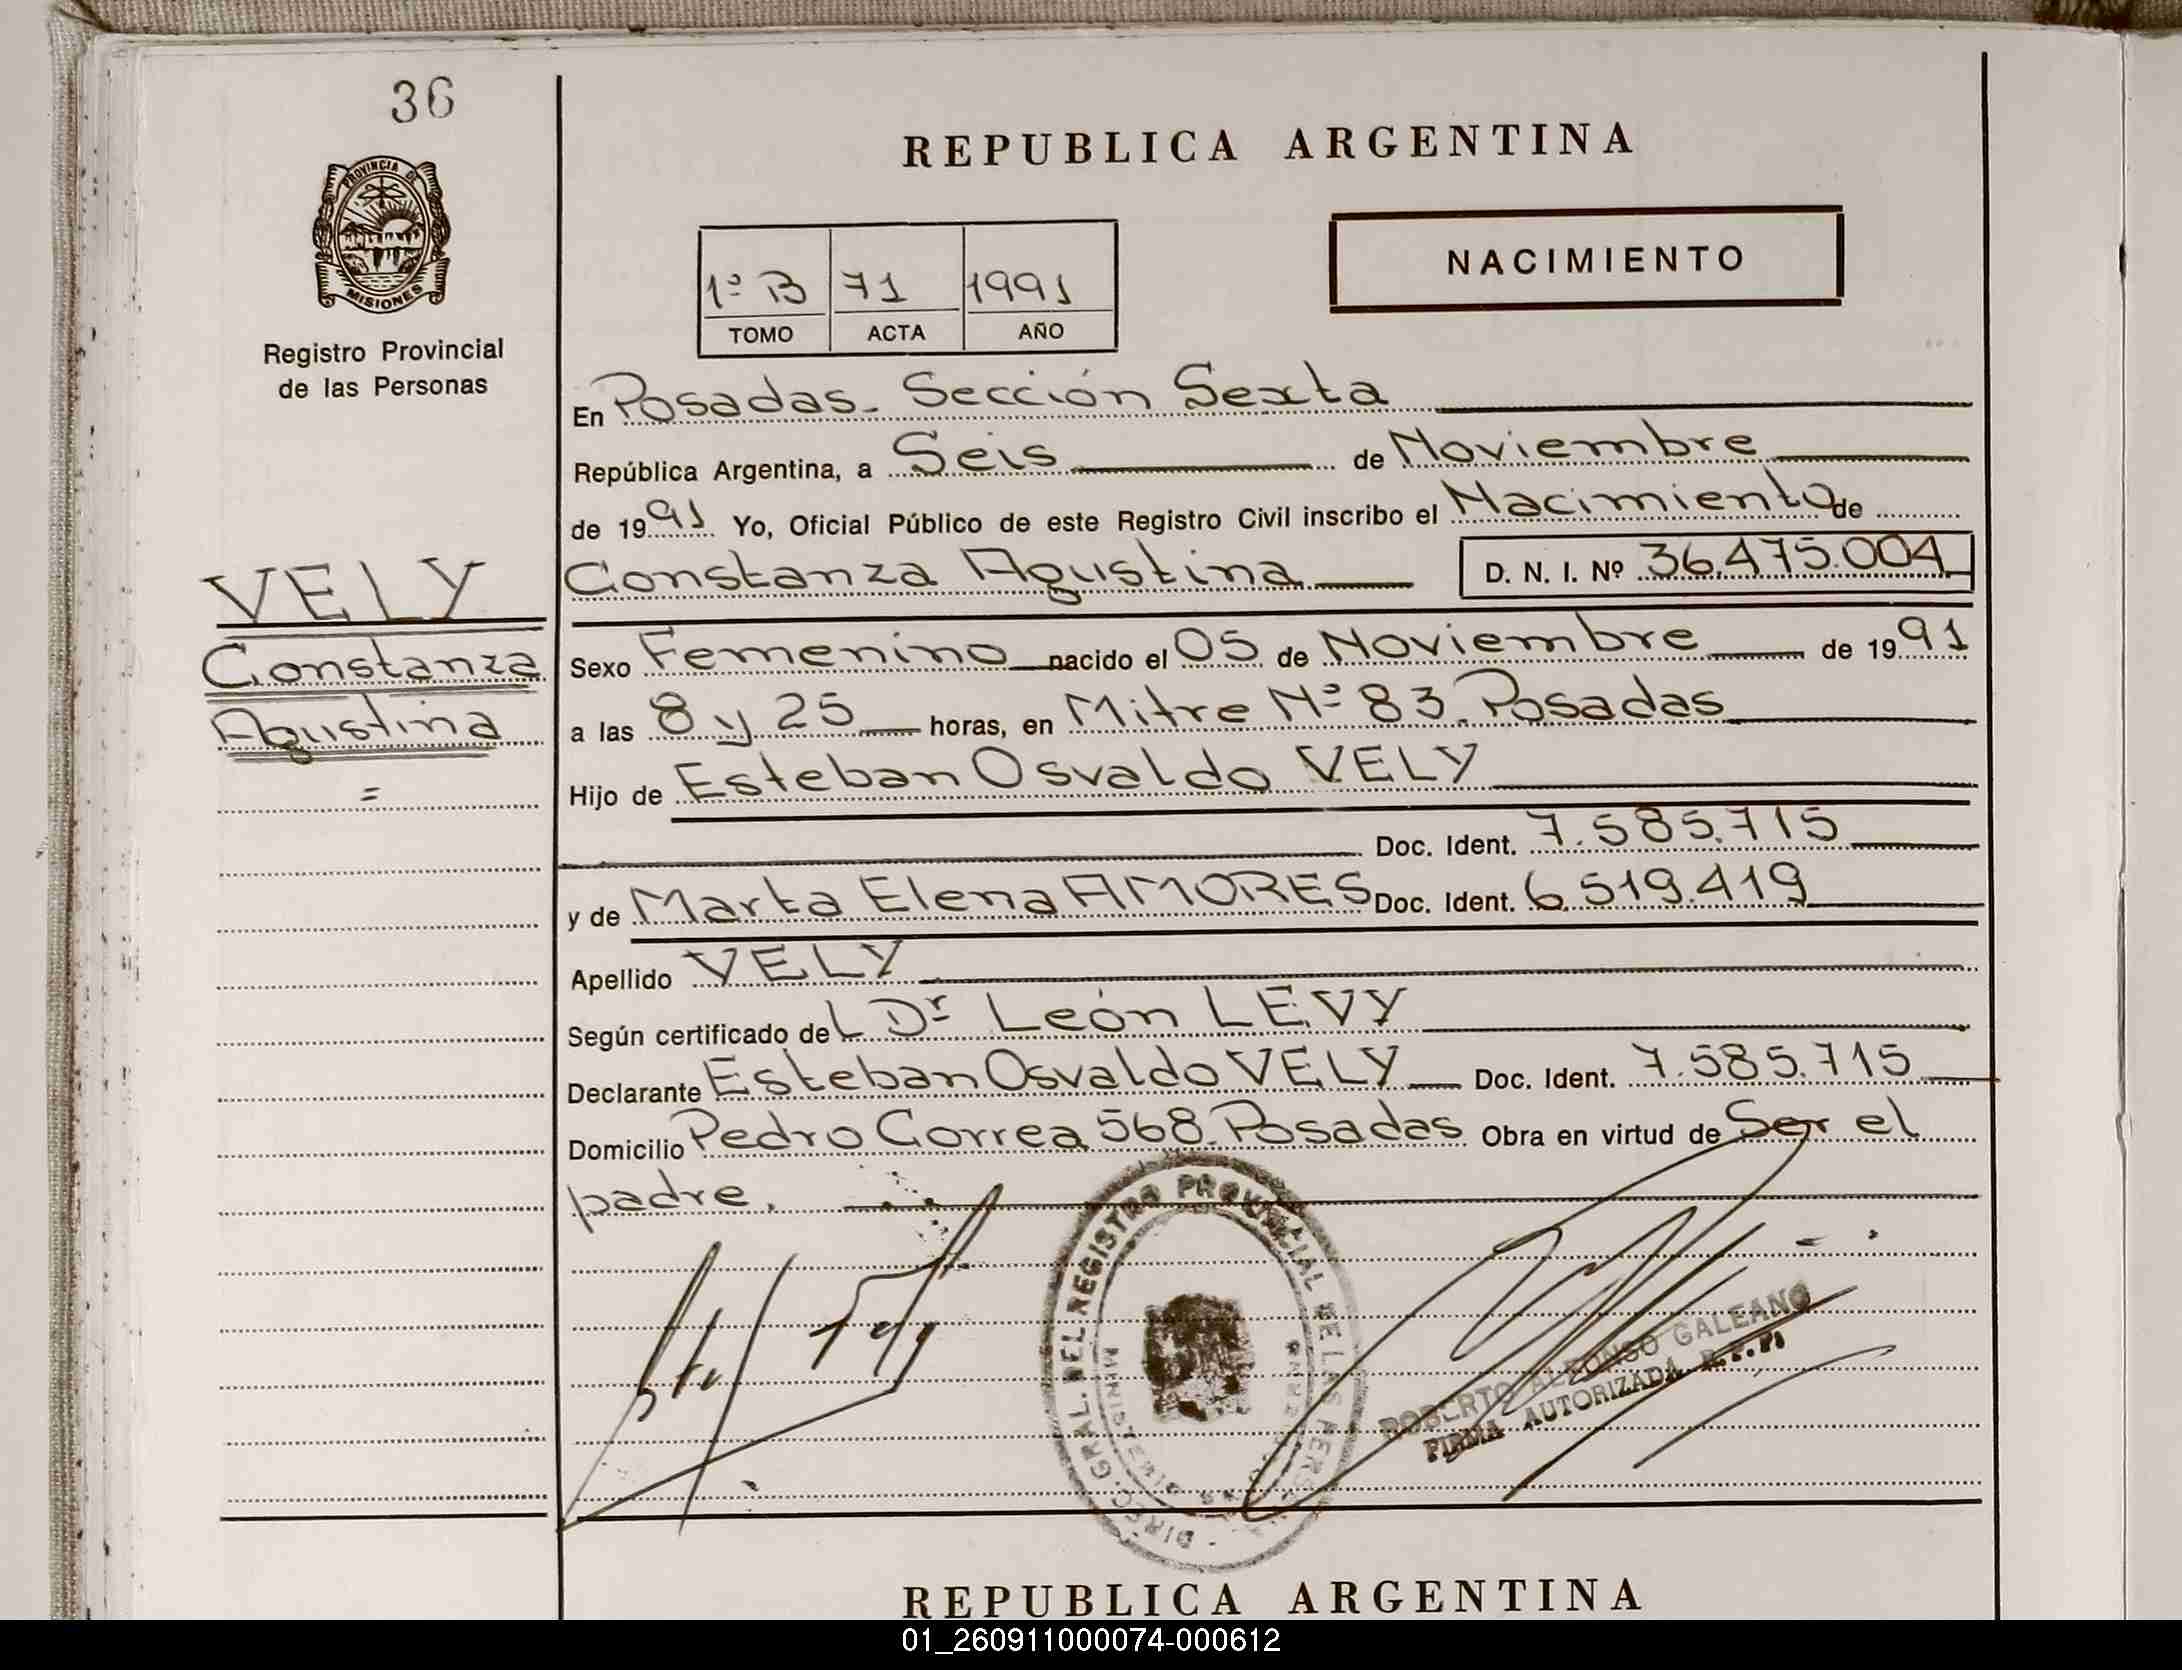 36
PROVINCIA DE
MISIONES
Registro Provincial
de las Personas
VELY
Constanza
Agustina
=
REPUBLICA ARGENTINA
1º B 71 1991
TOMO ACTA AÑO
NACIMIENTO
En Posadas. Sección Sexta
República Argentina, a Seis de Noviembre
de 1991 Yo, Oficial Público de este Registro Civil inscribo el Nacimiento de
Constanza Agustina D. N. I. Nº 36.475.004
Sexo Femenino nacido el 05 de Noviembre de 1991
a las 8 y 25 horas, en Mitre Nº 83. Posadas
Hijo de Esteban Osvaldo VELY
Doc. Ident. 7.585.715
y de Marta Elena AMORES Doc. Ident. 6.519.419
Apellido VELY
Según certificado del Dr León LEVY
Declarante Esteban Osvaldo VELY Doc. Ident. 7.585.715
Domicilio Pedro Correa 568. Posadas Obra en virtud de Ser el
padre.
DIREC. GRAL. DEL REGISTRO PROVINCIAL DE LAS PERSONAS
ROBERTO ALFONSO GALEANO
FIRMA AUTORIZADA R.P.P.
REPUBLICA ARGENTINA
01_260911000074-000612